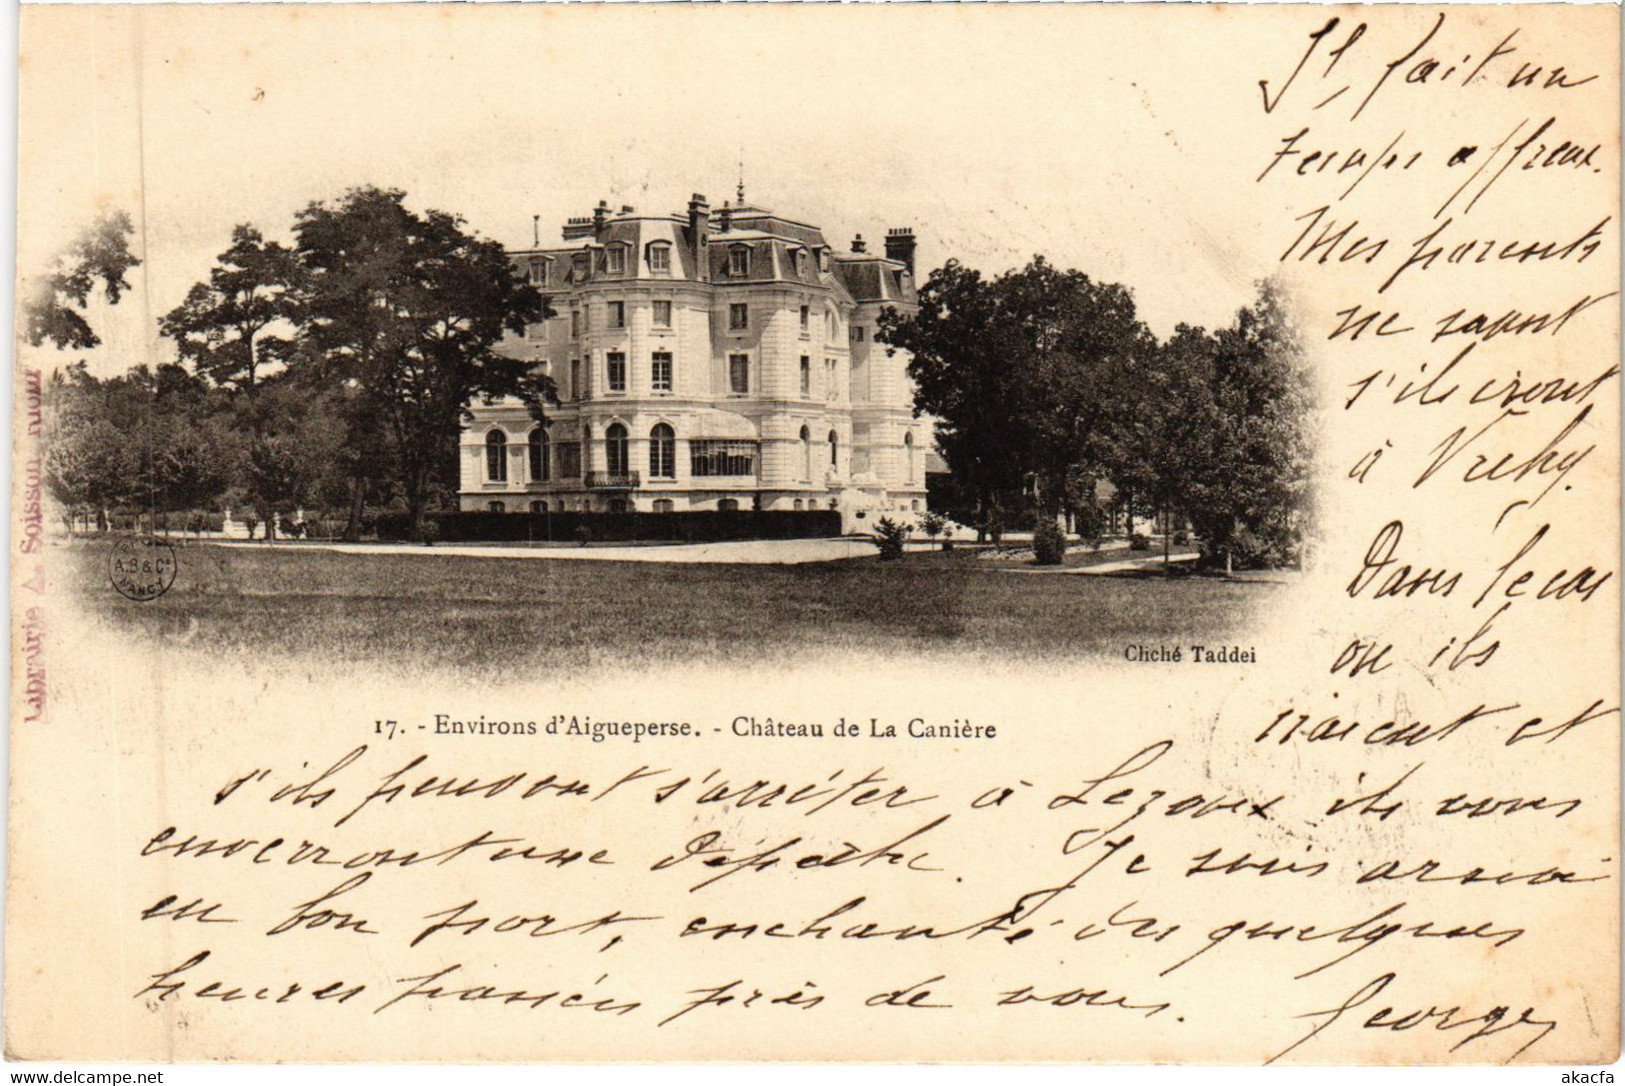 Il fait un
temps affreux.
Mes parents
ne savent
s'ils iront
à Vichy.
Dans le cas
où ils
iraient et
s'ils peuvent s'arrêter à Lezoux ils vous
enverront une dépêche. Je suis arrivé
en bon port, enchanté des quelques
heures passées près de vous.
Georges
17. - Environs d'Aigueperse. - Château de La Canière
Cliché Taddei
A.B & Cie
NANCY
Librairie A. Soisson Riom
www.delcampe.net
akacfa